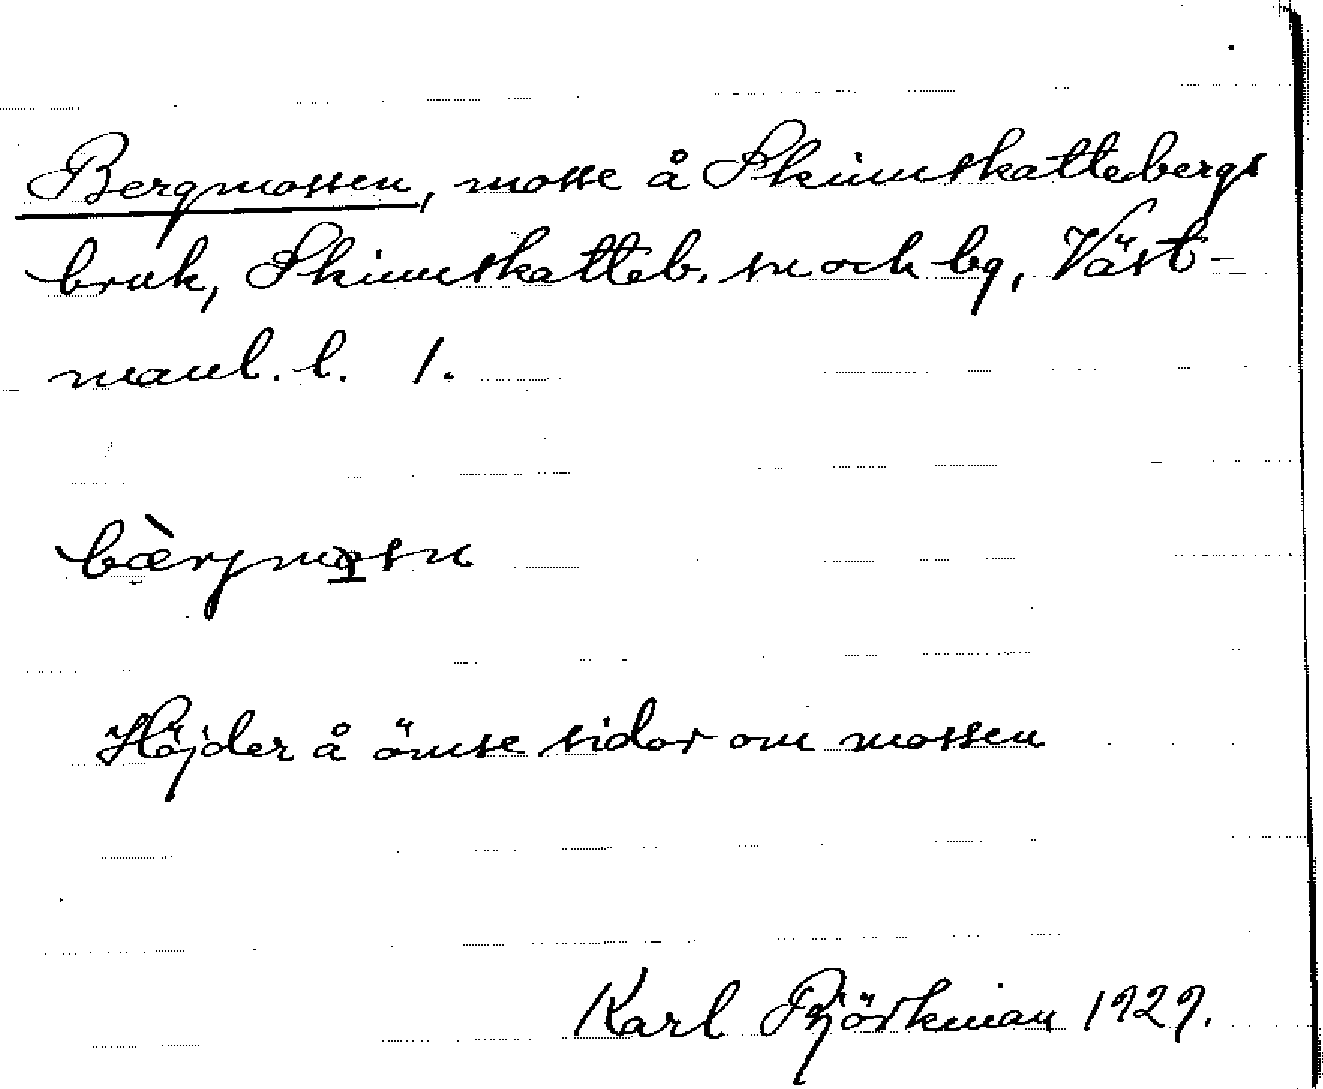 Bergmossen, mosse å Skinnskattebergs
bruk, Skinnskatteb. sn och bg, Väst-
manl. l. 1.
bæ̀rjmo̲sn
Höjder å ömse sidor om mossen
Karl Björkman 1929.